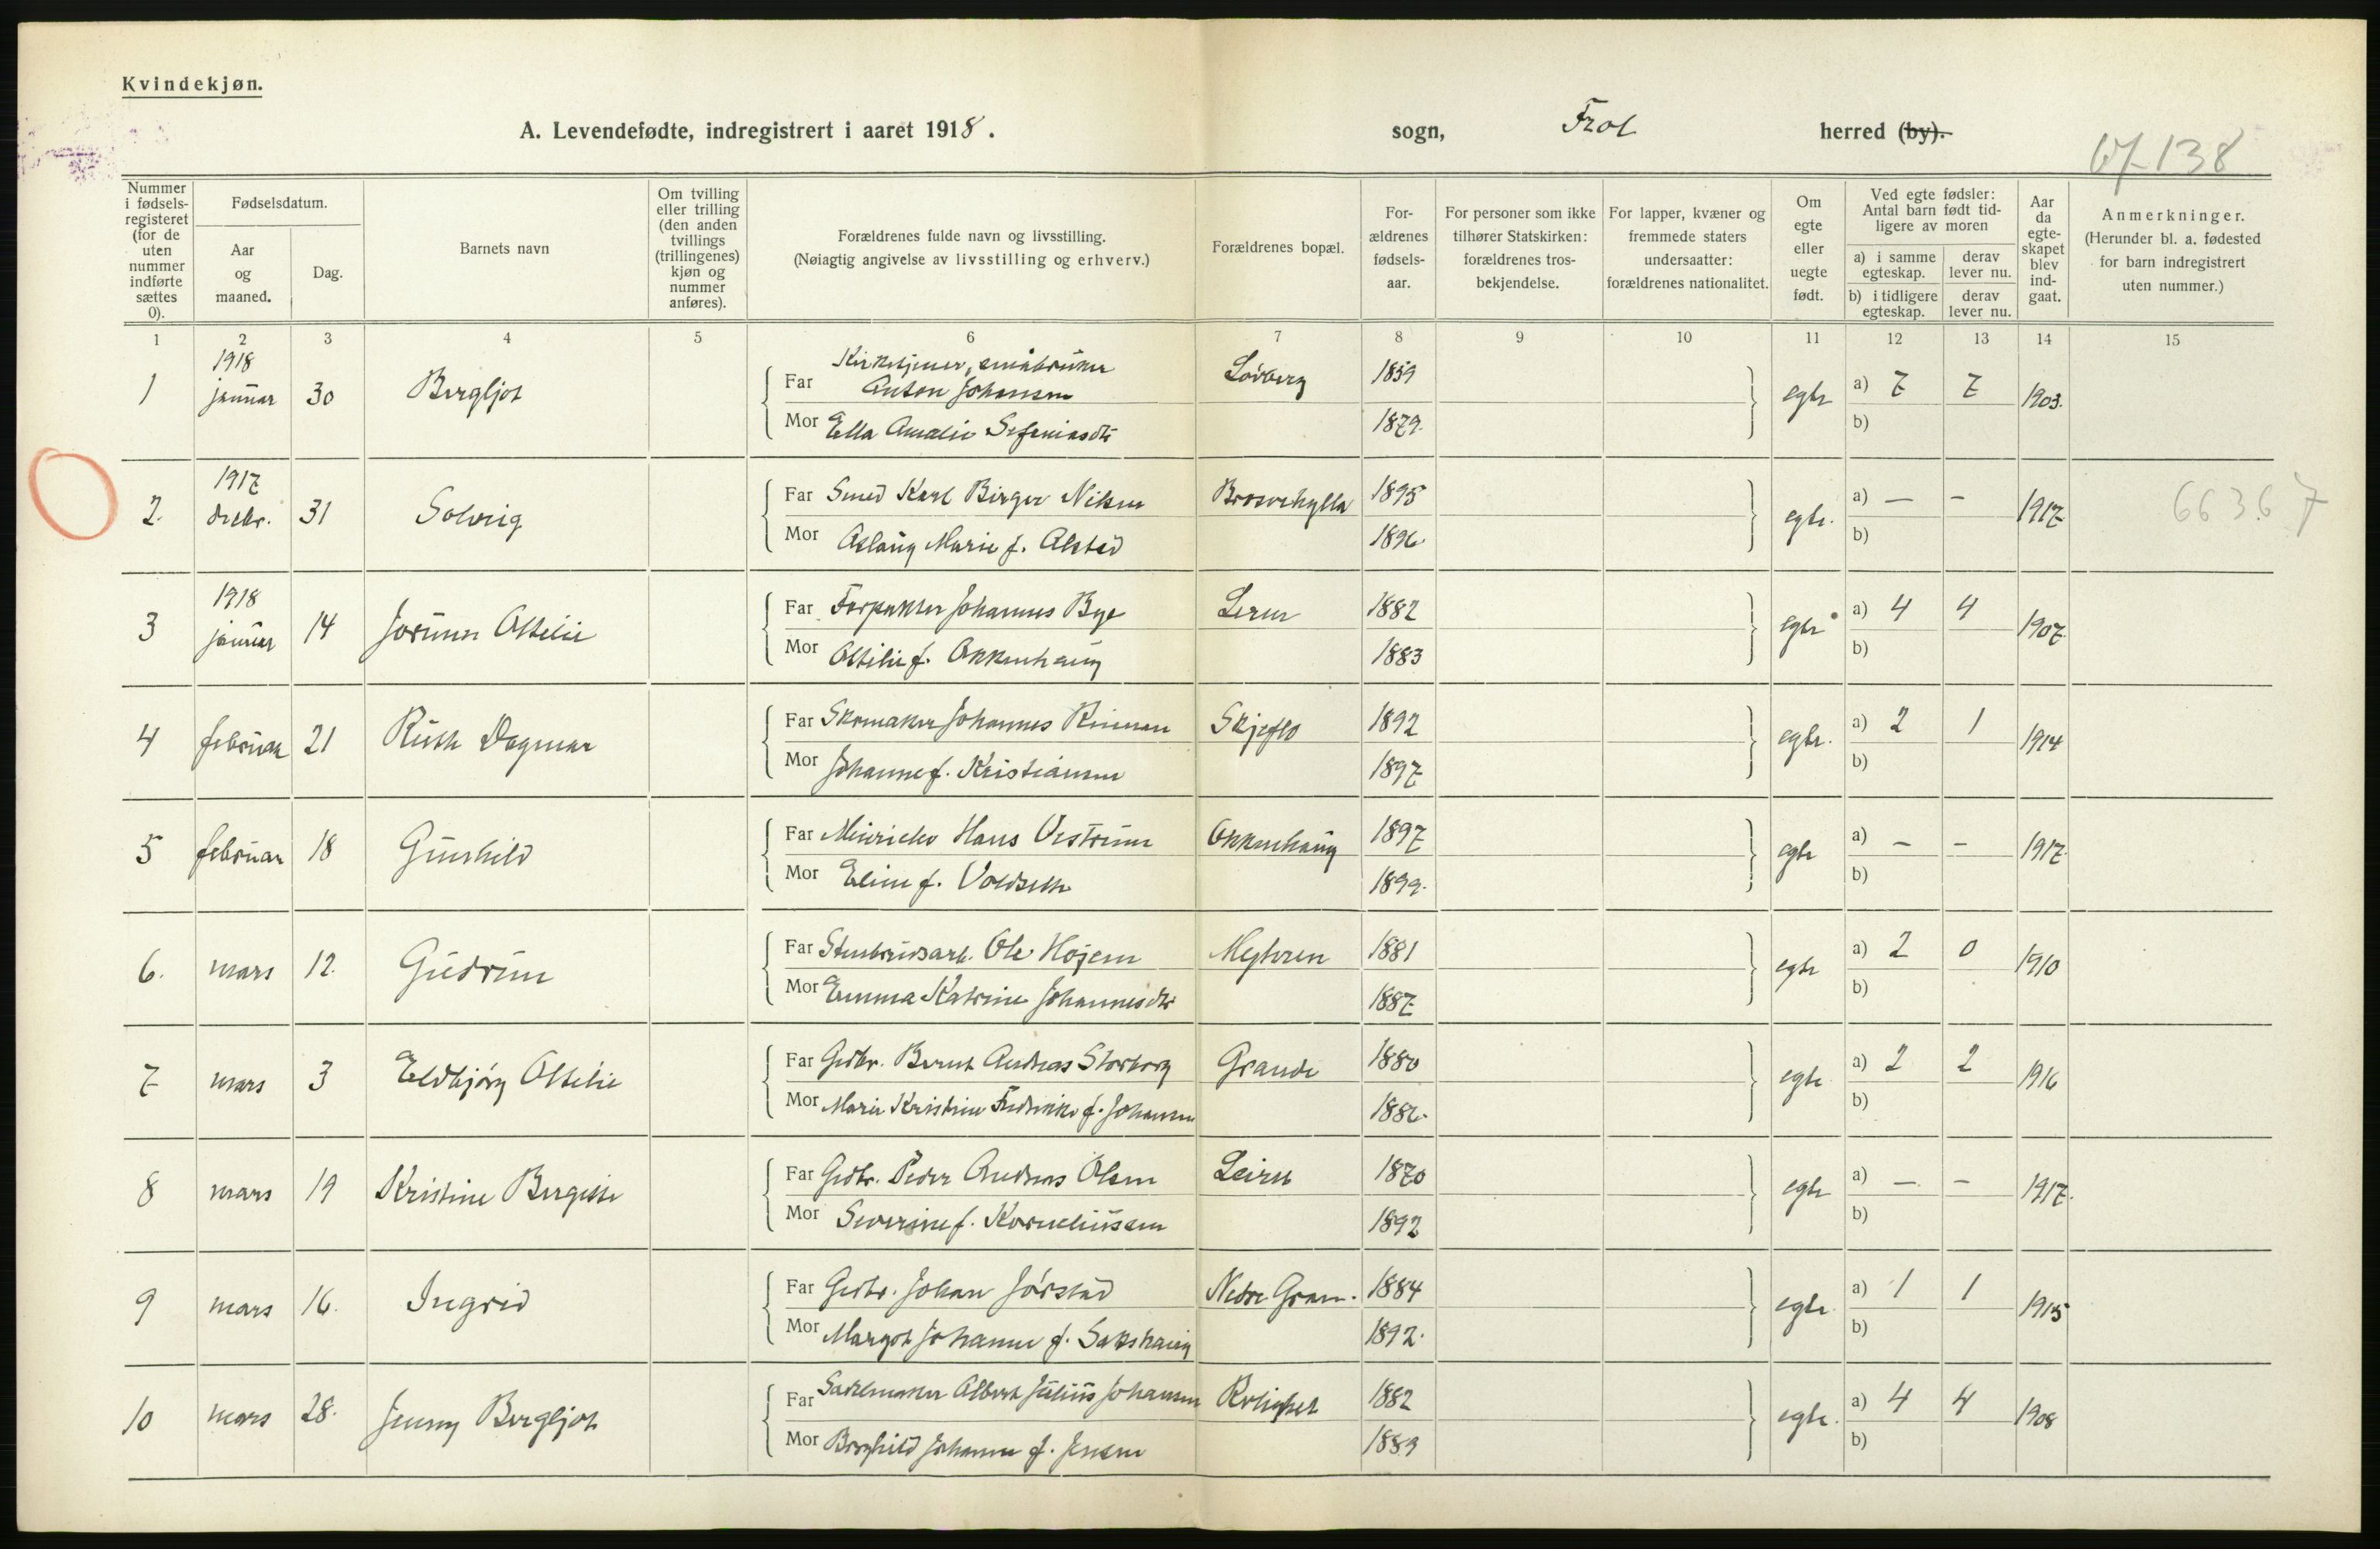 Kvindekjøn.
A. Levendefødte, indregistrert i aaret 1918.
sogn, Frol herred (by).
138
Nummer i fødsels-registeret (for de uten nummer indførte sættes 0).
Fødselsdatum.
Aar og maaned.
Dag.
Barnets navn
Om tvilling eller trilling (den anden tvillings (trillingenes) kjøn og nummer anføres).
Forældrenes fulde navn og livsstilling.
(Nøiagtig angivelse av livsstilling og erhverv.)
Forældrenes bopæl.
For-ældrenes fødsels-aar.
For personer som ikke tilhører Statskirken: forældrenes tros-bekjendelse.
For lapper, kvæner og fremmede staters undersaatter: forældrenes nationalitet.
Om egte eller uegte født.
Ved egte fødsler: Antal barn født tid-ligere av moren
a) i samme egteskap.
derav lever nu.
b) i tidligere egteskap.
derav lever nu.
Aar da egte-skapet blev ind-gaat.
Anmerkninger.
(Herunder bl. a. fødested for barn indregistrert uten nummer.)
1 2 3 4 5 6 7 8 9 10 11 12 13 14 15
1918
Kirketjener, småbruker
1 januar 30 Bergljot Far Anton Johansen Løvberg 1859 egte a) 7 7 1903.
Mor Ella Amalie Sefaniasdtr 1879. b)
1917
2. decbr. 31 Solveig Far Smed Karl Birger Nilsen 1895 egte. a) — – 1917 66367
Mor Aslaug Marie f. Alstad 1896. b)
1918
3 januar 14 Jorunn Otelie Far Forpakter Johannes Bye Leren 1882 egte a) 4 4 1907.
Mor Otilie f. Okkenhaug 1883 b)
4 februar 21 Ruth Dagmar Far Skomaker Johannes Rinnan Skjeflo 1892 egte. a) 2 1 1914
Mor Johanne f. Kristiansen 1897 b)
5 februar 18 Gunhild Far Hans Okkenhaug 1897 egte a) – – 1917.
Mor Eline f. Voldseth 1899. b)
6. mars 12. Gudrun Far Stenbrudsarb. Ole Højem 1881 egte a) 2 0 1910
Mor Emma Katrine Johannesdtr 1887 b)
7 mars 3 Eldbjørg Otelie Far Grdbr. Bernt Andreas Storborg Grande 1880 egte a) 2 2 1916
Mor Marie Kristine Fredrikke f. Johansen 1882. b)
8 mars 19 Kristine Bergitte Far Grdbr. Peder Andreas Olsen Leiren 1870 egte a) — – 1917.
Mor Severine f. Korneliussen 1892 b)
9 mars 16. Ingrid Far Grdbr. Johan Jørstad Nedre Gran. 1884 egte. a) 1 1 1915
Mor Margot Johanne f. Sakshaug 1892. b)
10 mars 28. Jenny Bergljot Far Sadelmaker Albert Julius Johansen Rolighet 1882 egte. a) 4 4 1908
Mor Borghild Johanne f. Jensen 1889 b)